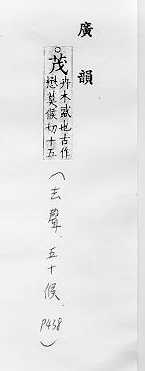 廣韻
。茂
卉木盛也古作
懋莫候切十五
（去聲．五十候．P438）